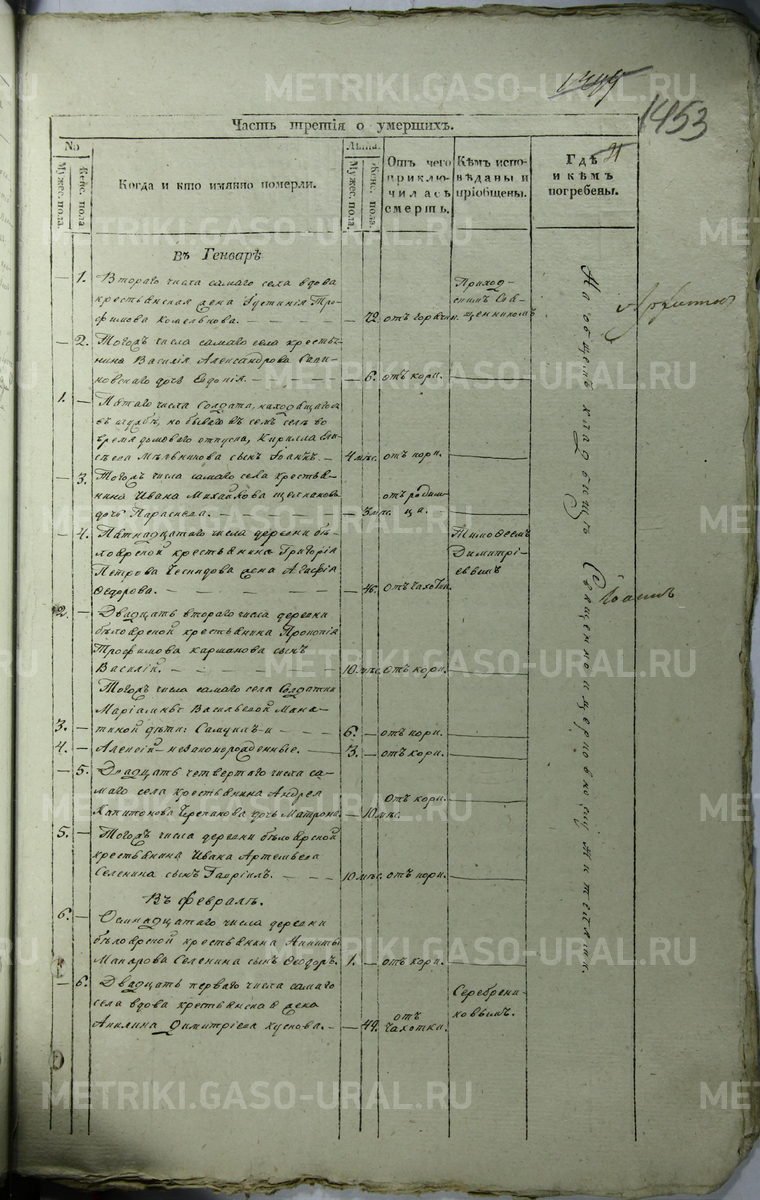 1453
Часть третія о умершихъ.
No
Мужес. пола.
Женс. пола
Когда и кто имянно померли.
Лѣта.
Мужес. пола.
Женс. пола.
Отъ чего приключилась смерть.
Кѣмъ исповѣданы и пріобщены.
Гдѣ и кѣмъ погребены.
Въ Генварѣ
— 1. Втораго числа самаго села вдова
крестьянская жена Устинія Тро-
фимова Комелькова. — — 72. отъ горячки.
Приход-
скимъ Свя-
щенникомъ
— 2. Тогожъ числа самаго села крестья-
нина Василія Александрова
дочь Евдокія. — — 6. отъ кори.
1. — Пятаго числа Солдата, находящагося
въ службѣ, но бывшаго въ семъ селѣ во
время домоваго отпуска, Кирилла
Мѣльникова сынъ Іоаннъ. — 4 мѣс. отъ кори.
— 3. Тогожъ числа самаго села крестья-
нина Ивана Михайлова
дочь Параскева. — 3 мѣс. отъ родим-
ца.
— 4. Пятнадцатаго числа деревни бѣ-
лоярской крестьянина Григорія
Петрова жена Агафія
Ѳедорова. — — 46. отъ чахотки.
Тимоѳеемъ
Димитрі-
евымъ
2. — Двадцать втораго числа деревни
бѣлоярской крестьянина Прокопія
Трофимова Карманова сынъ
Василій. — 10 мѣс. отъ кори.
Тогожъ числа самаго села Солдатки
Васильевой
3. — дѣти: Самуилъ и — 6. — отъ кори.
4. — Алексій — незаконорожденные. — 3. — отъ кори.
— 5. Двадцать четвертаго числа са-
маго села крестьянина Андрея
Капитонова Черепанова дочь Матрона. — 10 мѣс. отъ кори.
5. — Тогожъ числа деревни бѣлоярской
крестьянина Ивана Артемьева
Селенина сынъ Гавріилъ. — 10 мѣс. отъ кори.
Въ февралѣ.
6. — Осмнадцатаго числа деревни
бѣлоярской крестьянина Никиты
Макарова Селенина сынъ Ѳеодоръ. 1. — отъ кори.
— 6. Двадцать перваго числа самаго
села вдова крестьянская жена
Акилина Димитріева — — 49. отъ
чахотки.
Серебрени-
ковымъ.
На общемъ кладбищѣ Священноицерковнослужителями.
Іоаннъ
METRIKI.GASO-URAL.RU